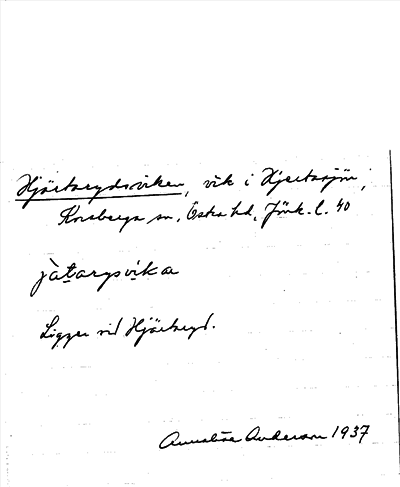 Hjärtarydsviken, vik i Hjertasjön,
Korsberga sn, Östra hd, Jönk. l. 40
jàtarysvika
Ligger vid Hjärtaryd.
Annalisa Anderson 1937